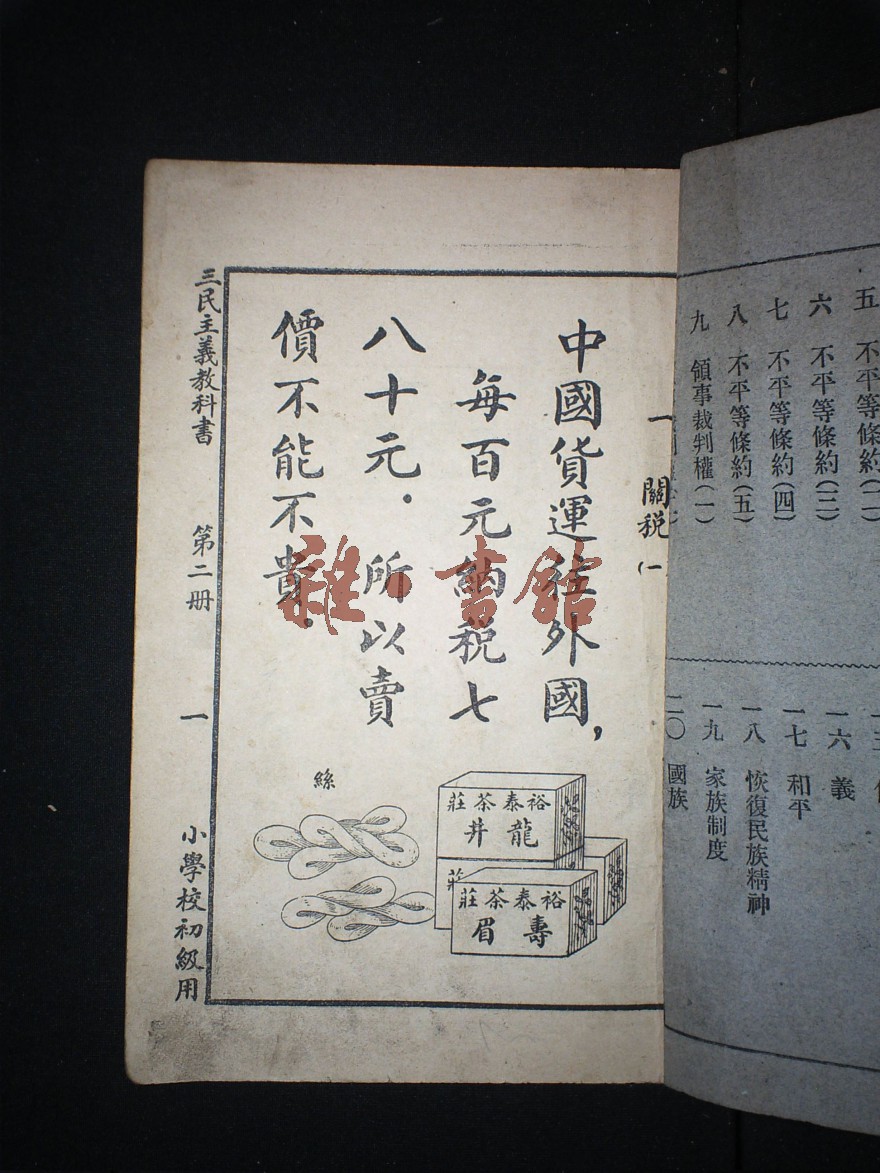 五 不平等條約(二)
六 不平等條約(三)
七 不平等條約(四)
八 不平等條約(五)
九 領事裁判權(一)
一六 義
一七 和平
一八 恢復民族精神
一九 家族制度
二〇 國族
一 關稅(一
中國貨運往外國,
每百元納稅七
八十元.所以賣
價不能不貴.
絲
裕泰茶莊
龍井
莊
裕泰茶莊
壽眉
三民主義教科書 第二册 一 小學校初級用
雜·書館